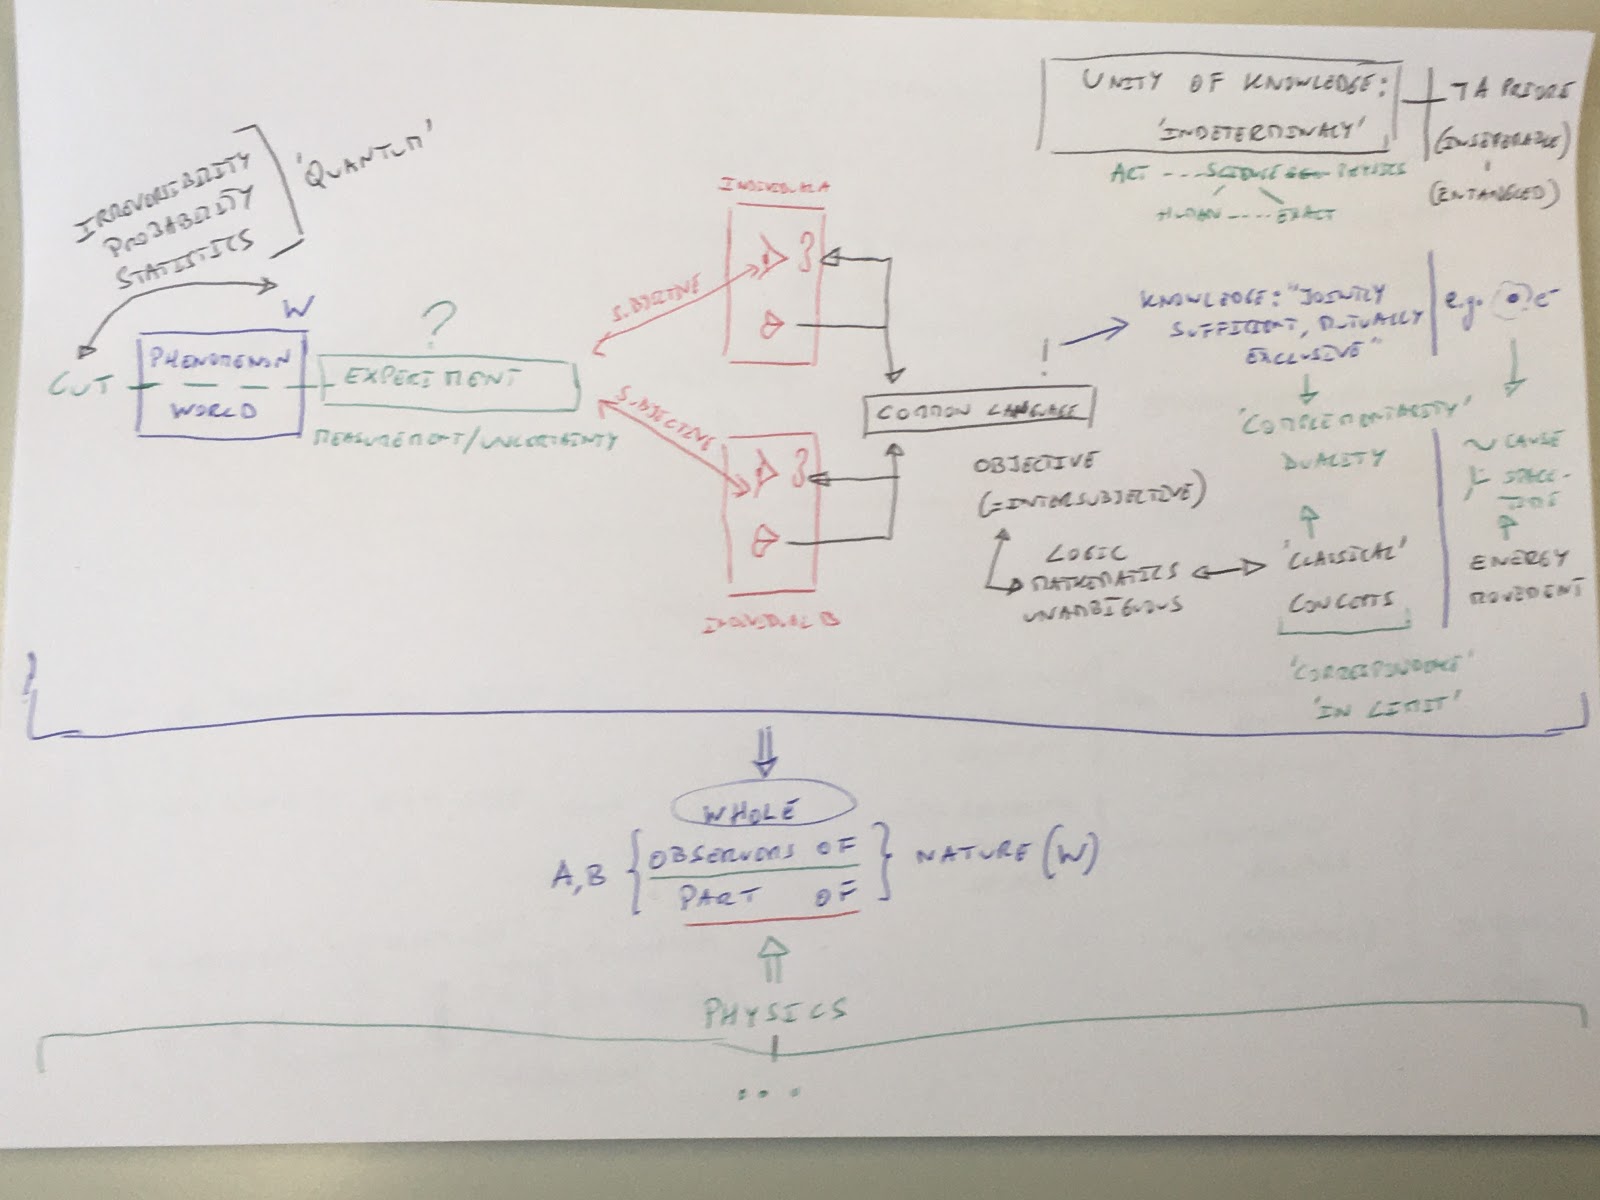 UNITY OF KNOWLEDGE:
'INDETERMINACY'
ART --- SCIENCE PHYSICS
HUMAN ---- EXACT
A PRIORI
(INSEPERABLE)
(ENTANGLED)
IRREVERSIBILITY
PROBABILITY
STATISTICS
'QUANTUM'
W
CUT
PHENOMENON
WORLD
?
EXPERIMENT
MEASUREMENT/UNCERTAINTY
SUBJECTIVE
SUBJECTIVE
INDIVIDUAL A
INDIVIDUAL B
!
COMMON LANGUAGE
OBJECTIVE
(=INTERSUBJECTIVE)
LOGIC
MATHEMATICS
UNAMBIGUOUS
KNOWLEDGE: "JOINTLY
SUFFICIENT, MUTUALLY
EXCLUSIVE"
e.g. e-
'COMPLEMENTARITY'
DUALITY
'CLASSICAL'
CONCEPTS
'CORRESPONDENCE'
'IN LIMIT'
~ CAUSE
SPACE-
TIME
ENERGY
MOVEMENT
WHOLE
A,B { OBSERVERS OF } NATURE (W)
PART OF
PHYSICS
...